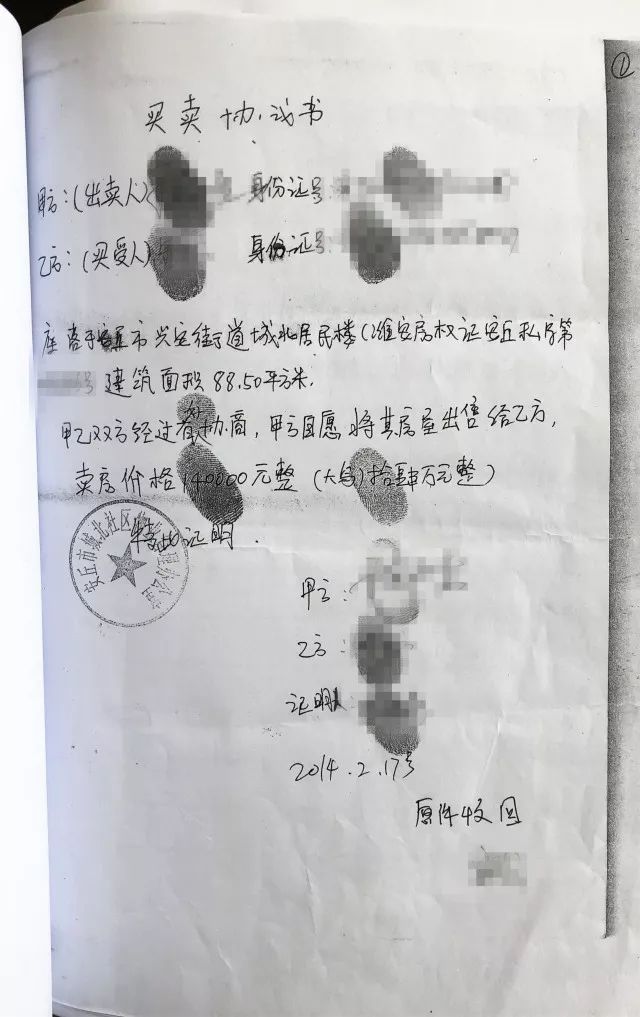 ①
买卖协议书
甲方：(出卖人) 身份证号:
乙方：(买受人) 身份证号:
座落于安丘市兴安街道城北居民楼(潍安房权证安丘私字第
号 建筑面积 88.50平方米.
甲乙双方经过 协商，甲方自愿将其房屋出售给乙方，
卖房价格140000元整 (大写)拾肆万元整)
特此证明.
安丘市城北社区 办公室
甲方:
乙方:
证明人
2014.2.17号
原件收回